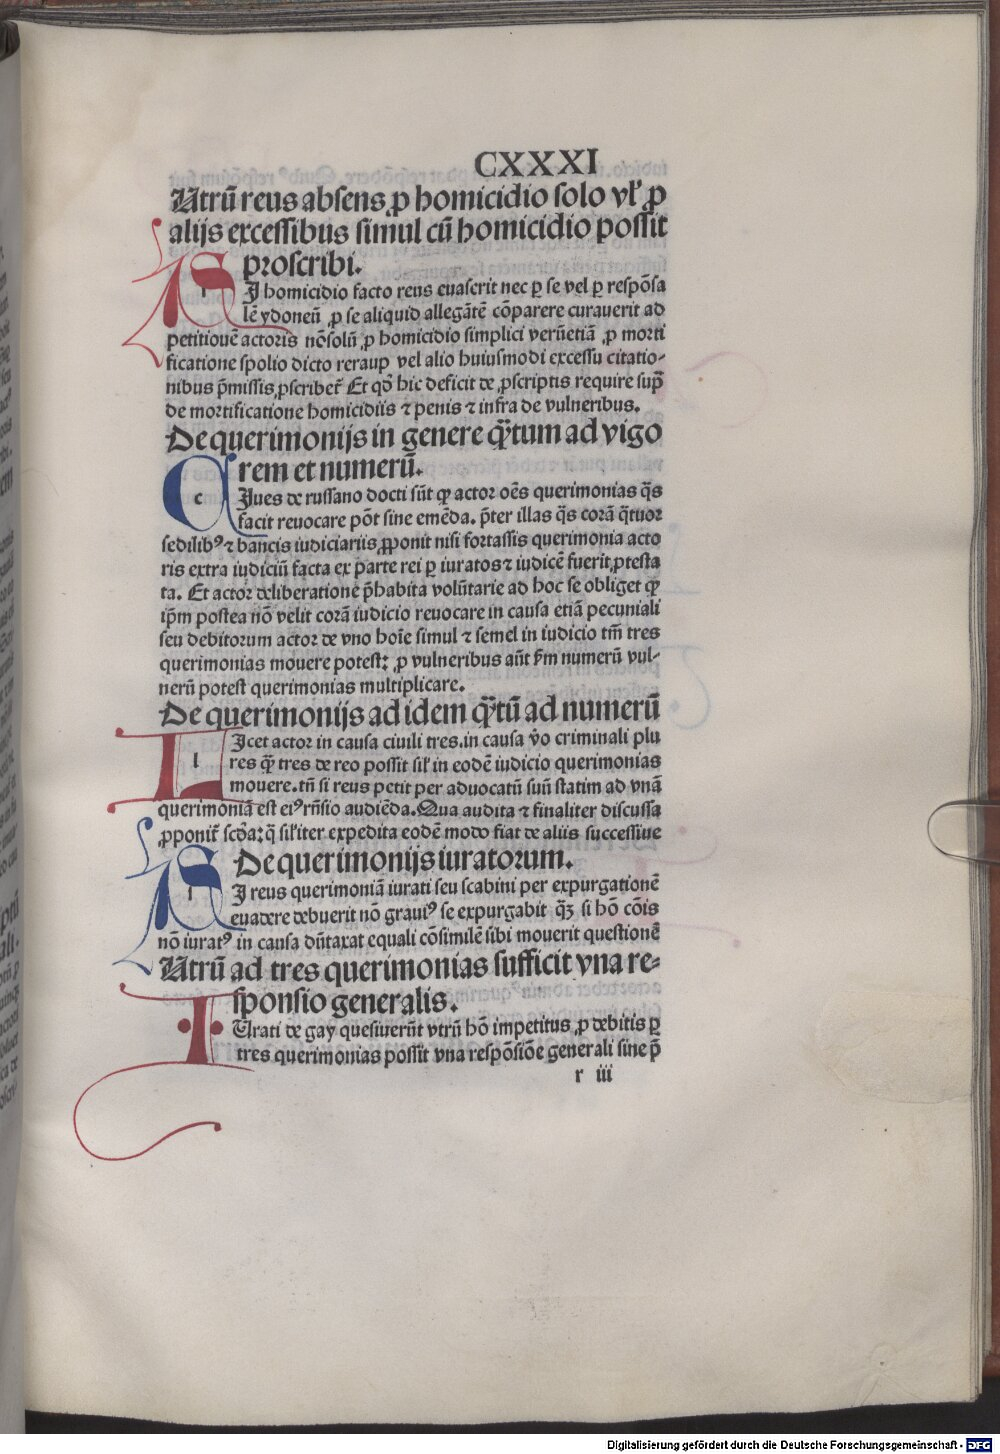 CXXXI
Utrū reus absens ꝓ homicidio solo vl' ꝓ
alijs excessibus simul cū homicidio possit
proscribi.
SI homicidio facto reus euaserit nec ꝑ se vel ꝑ respōsa
lē ydoneū ꝓ se aliquid allegātē cōparere curauerit ad
petitiouē actoris nōsolū ꝓ homicidio simplici verūetiā ꝓ morti
ficatione spolio dicto reraup vel alio huiusmodi excessu citatio-
nibus p̄missis ꝓscribet̄ Et qd̓ hic deficit de ꝓscriptis require sup̄
de mortificatione homicidiis ⁊ penis ⁊ infra de vulneribus.
De querimonijs in genere q̄tum ad vigo
rem et numerū.
CIues de russano docti sūt ꝙ actor oēs querimonias q̄s
facit reuocare pōt sine emēda. p̄ter illas q̄s corā q̄tuor
sedilibꝰ ⁊ bancis iudiciariis ꝓponit nisi fortassis querimonia acto
ris extra iudiciū facta ex parte rei ꝑ iuratos ⁊ iudicē fuerit ꝓtesta
ta. Et actor deliberatione p̄habita volūtarie ad hoc se obliget ꝙ
ip̄m postea nō velit corā iudicio reuocare in causa etiā pecuniali
seu debitorum actor de vno hoīe simul ⁊ semel in iudicio tm̄ tres
querimonias mouere potest: ꝓ vulneribus aūt s̄m numerū vul-
nerū potest querimonias multiplicare.
De querimonijs ad idem q̄tū ad numerū
LIcet actor in causa ciuili tres. in causa v̓o criminali plu
res q̄ tres de reo possit sil' in eodē iudicio querimonias
mouere. tn̄ si reus petit per aduocatū suū statim ad vnā
querimoniā est eiꝰ rn̄sio audiēda. Qua audita ⁊ finaliter discussa
ꝓponit̄ scd̓a: q̄ sil'iter expedita eodē modo fiat de aliis successiue
De querimonijs iuratorum.
SI reus querimoniā iurati seu scabini per expurgationē
euadere debuerit nō grauiꝰ se expurgabit q̄ꝫ si hō cōis
nō iuratꝰ in causa dūtaxat equali cōsimilē sibi mouerit questionē
Utrū ad tres querimonias sufficit vna re-
sponsio generalis.
IUrati de gay quesiuerūt vtrū hō impetitus ꝓ debitis ꝑ
tres querimonias possit vna respōsiōe generali sine p̄
r iii
Digitalisierung gefördert durch die Deutsche Forschungsgemeinschaft - DFG